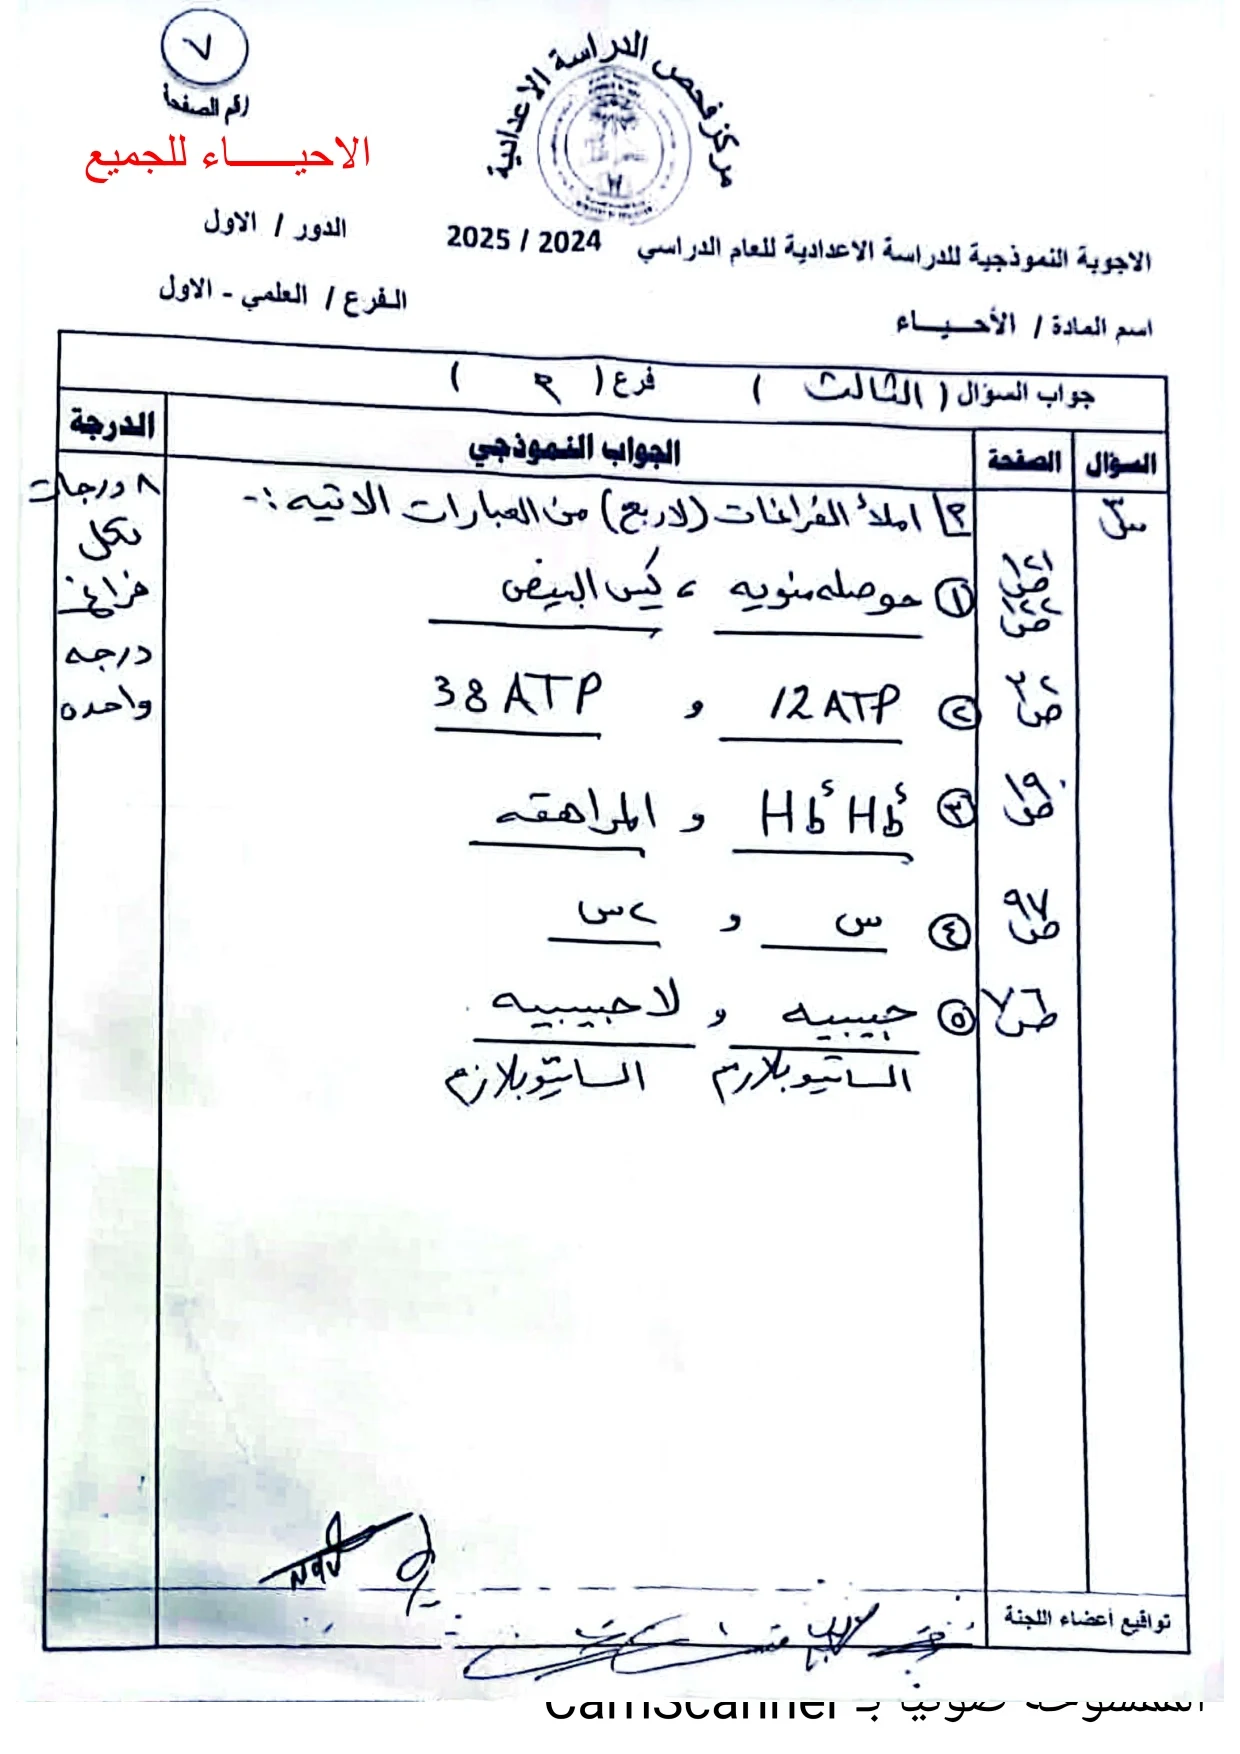 ٧
رقم الصفحة
مركز فحص الدراسة الاعدادية
الاحيـــــاء للجميع
الاجوبة النموذجية للدراسة الاعدادية للعام الدراسي 2024 / 2025
الدور / الاول
اسم المادة / الأحـيــــاء
الفرع / العلمي - الاول
جواب السؤال ( الثالث ) فرع ( ٢ )
السؤال
الصفحة
الجواب النموذجي
الدرجة
س٣
٢] املأ الفراغات (لاربع) من العبارات الاتيه :-
٨ درجات
لكل
فراغ
درجه
واحده
ص١٢١
ص١٢٢
① حوصله منويه ، كيس البيض
ص٣٢
② 12 ATP و 38 ATP
ص١٩٠
③ Hbˢ Hbˢ و المراهقه
ص٩٧
④ س و ٢س
ص٧٦
⑤ جيبيه و لا جيبيه
السايتوبلازم السايتوبلازم
تواقيع أعضاء اللجنة
الممسوحة ضوئيا بـ CamScanner